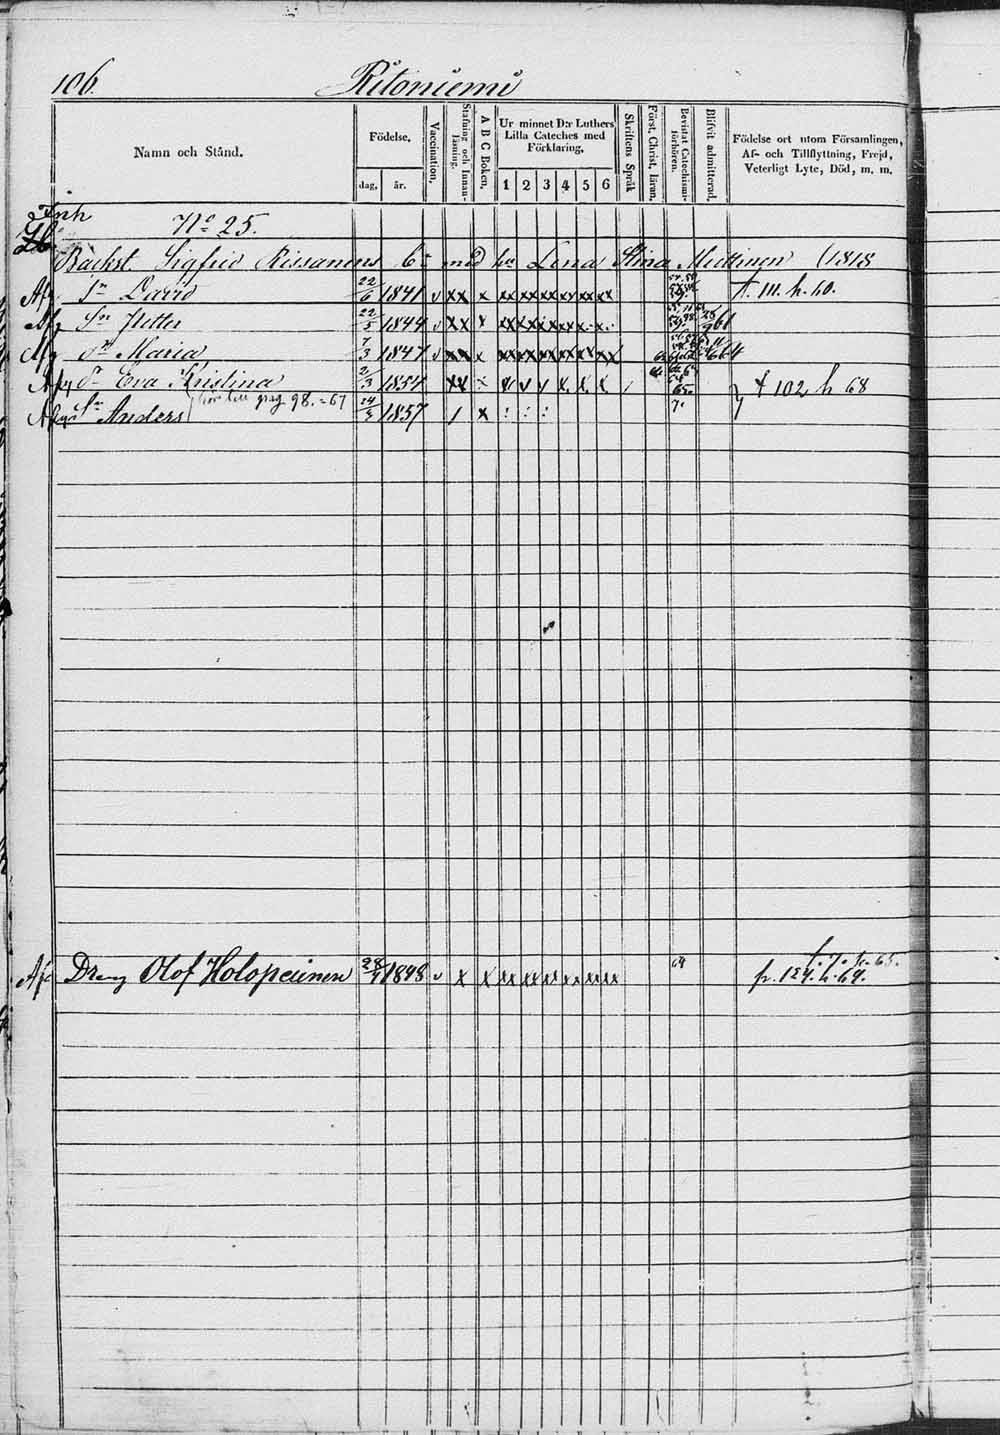 106. Ritoniemi
Namn och Stånd.
Födelse.
dag, år.
Vaccination.
Stafning och Innanläsning.
A B C Boken,
Ur minnet D:r Luthers Lilla Cateches med Förklaring.
1 2 3 4 5 6
Skriftens Språk
Först. Christ, läran,
Bevistat Catechismi-förhören.
Blifvit admitterad,
Födelse ort utom Församlingen,
Af- och Tillflyttning, Frejd,
Veterligt Lyte, Död, m. m.
Inh
No 25.
Bäckst. Sigfrid Rissanens bn med hu Lena Stina Miettinen (1818
Afg Sn David 22/6 1841 v xx x xx xx xx xx xx xx f. 111. h. 60.
Afg Sn Petter 22/5 1844 v xx x 25/9 61
Afg Dr Maria 7/3 1847 v xx x xx xx xx xx xx xx 64
Afg Dr Eva Kristina 2/3 1854 xx v v v x x x f 102 h 68
Sn Anders före till pag 98. = 67 24/3 1857 / x : : : 70
Af Dreng Olof Holopainen 28/4 1848 v x x xx xx xx xx xx xx 64 f. 7. h. 65.
fr. 124. h. 64.